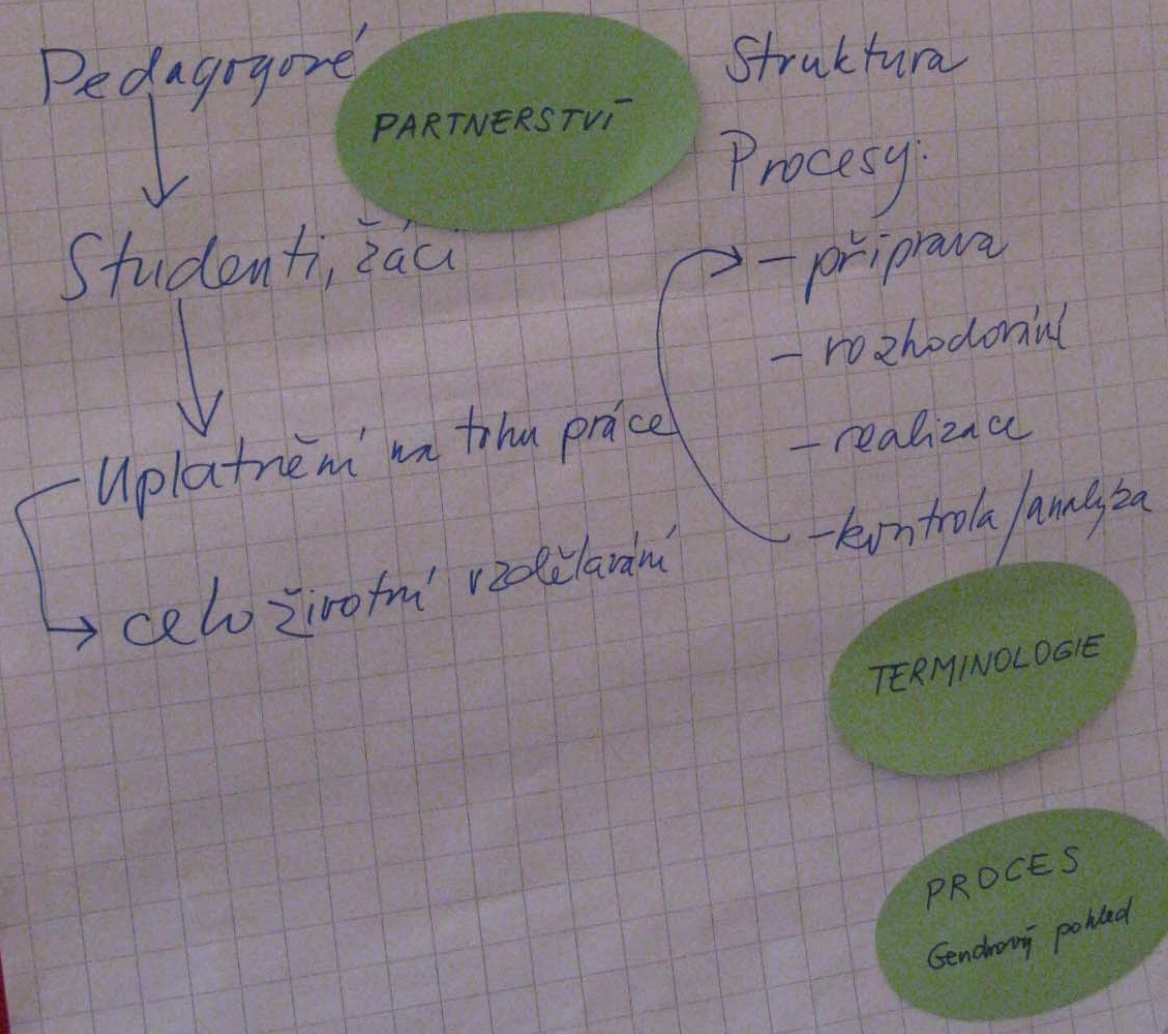 Pedagogové
PARTNERSTVÍ
Studenti, žáci
Uplatnění na trhu práce
celoživotní vzdělávání
Struktura
Procesy:
- příprava
- rozhodování
- realizace
- kontrola/analýza
TERMINOLOGIE
PROCES
Gendrový pohled